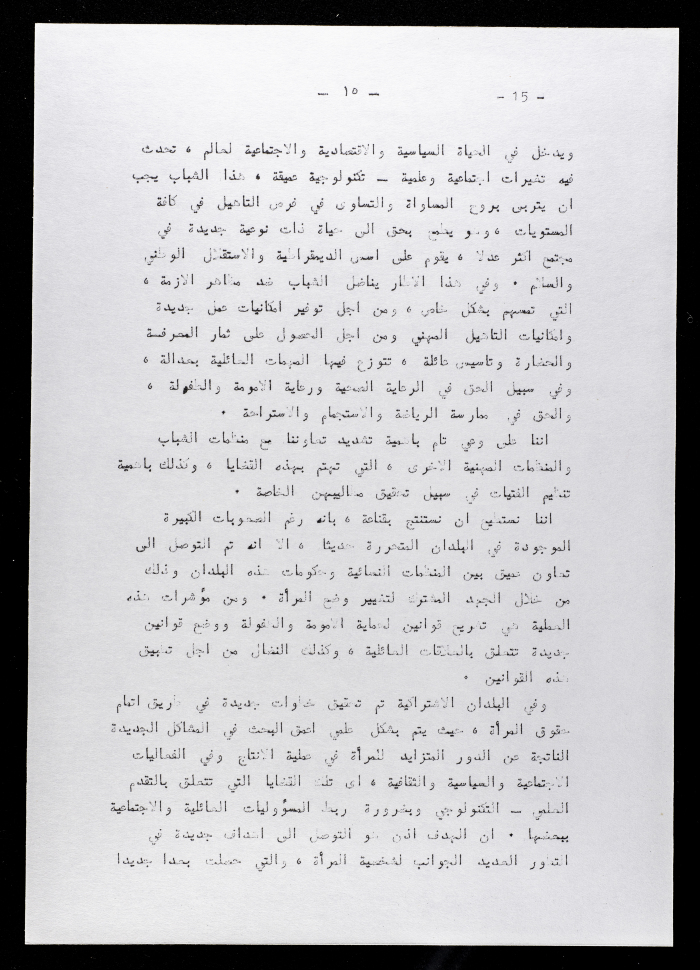 - ١٥ -
- 15 -
ويدخل في الحياة السياسية والاقتصادية والاجتماعية لعالم ، تحدث
فيه تغيرات اجتماعية وعلمية - تكنولوجية عميقة ، هذا الشباب يجب
ان يتربى بروح المساواة والتساوى في فرص التاهيل في كافة
المستويات ، وهو يطمح بحق الى حياة ذات نوعية جديدة في
مجتمع اكثر عدلا ، يقوم على اسس الديمقراطية والاستقلال الوطني
والسلام . وفي هذا الاطار يناضل الشباب ضد مظاهر الازمة ،
التي تمسهم بشكل خاص ، ومن اجل توفير امكانيات عمل جديدة
وامكانيات التاهيل المهني ومن اجل الحصول على ثمار المعرفة
والحضارة وتاسيس عائلة ، تتوزع فيها المهمات العائلية بعدالة ،
وفي سبيل الحق في الرعاية الصحية ورعاية الامومة والطفولة ،
والحق في ممارسة الرياضة والاستجمام والاستراحة .
اننا على وعي تام باهمية تشديد تعاوننا مع منظمات الشباب
والمنظمات المهنية الاخرى ، التي تهتم بهذه القضايا ، وكذلك باهمية
تنظيم الفتيات في سبيل تحقيق مطاليبهن الخاصة .
اننا نستطيع ان نستنتج بقناعة ، بانه رغم الصعوبات الكبيرة
الموجودة في البلدان المتحررة حديثا ، الا انه تم التوصل الى
تعاون عميق بين المنظمات النسائية وحكومات هذه البلدان وذلك
من خلال الجهد المشترك لتغيير وضع المرأة . ومن مؤشرات هذه
العملية هي تشريع قوانين لحماية الامومة والطفولة ووضع قوانين
جديدة تتعلق بالعلاقات العائلية ، وكذلك النضال من اجل تطبيق
هذه القوانين .
وفي البلدان الاشتراكية تم تحقيق خطوات جديدة في طريق اتمام
حقوق المرأة ، حيث يتم بشكل علمي اعمق البحث في المشاكل الجديدة
الناتجة عن الدور المتزايد للمرأة في عملية الانتاج وفي الفعاليات
الاجتماعية والسياسية والثقافية ، اى تلك القضايا التي تتعلق بالتقدم
العلمي - التكنولوجي وبضرورة ربط المسؤوليات العائلية والاجتماعية
ببعضها . ان الهدف اذن هو التوصل الى اهداف جديدة في
التطور العديد الجوانب لشخصية المرأة ، والتي حملت بعدا جديدا